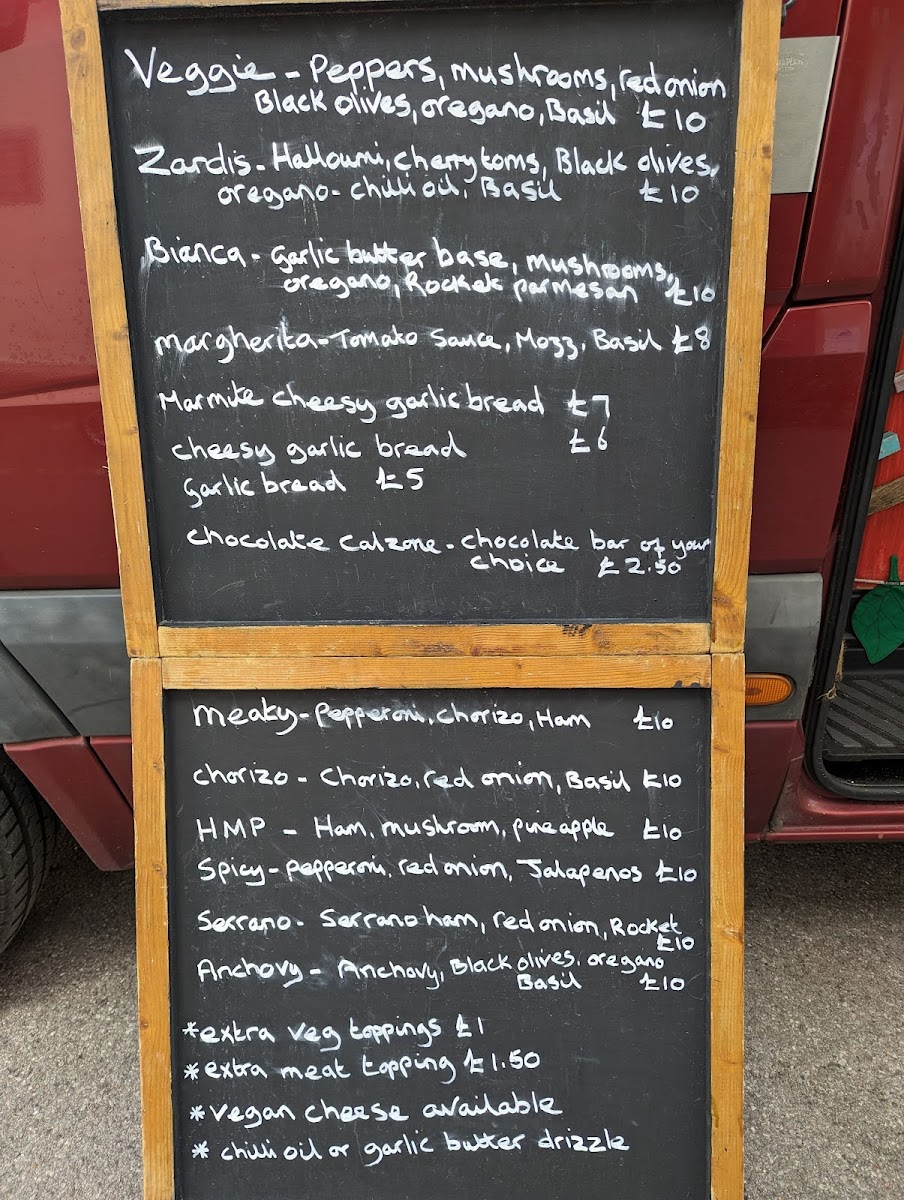 Veggie - Peppers, mushrooms, red onion
Black olives, oregano, Basil £10
Zardis - Halloumi, cherry toms, Black olives,
oregano - chilli oil, Basil £10
Bianca - garlic butter base, mushrooms,
oregano, Rocket parmesan £10
margherita - Tomato Sauce, Mozz, Basil £8
Marmite cheesy garlic bread £7
cheesy garlic bread £6
garlic bread £5
chocolate calzone - chocolate bar of your
choice £2.50
meaty - Pepperoni, chorizo, Ham £10
chorizo - Chorizo, red onion, Basil £10
HMP - Ham, mushroom, pineapple £10
Spicy - pepperoni, red onion, Jalapenos £10
Serrano - Serrano ham, red onion, Rocket
£10
Anchovy - Anchovy, Black olives, oregano
Basil £10
*extra veg toppings £1
*extra meat topping £1.50
*vegan cheese available
* chilli oil or garlic butter drizzle